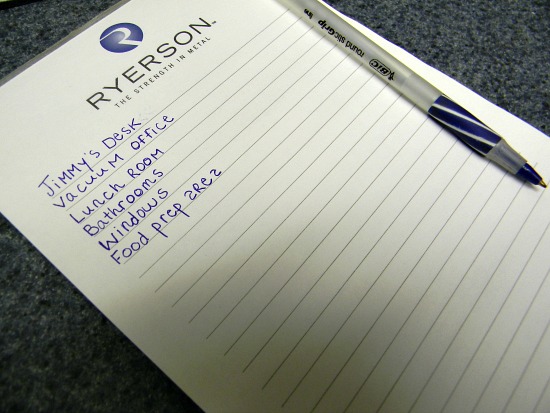 RYERSON™
THE STRENGTH IN METAL
Jimmy's Desk
Vacuum office
Lunch Room
Bathrooms
Windows
Food prep area
BIC round stic Grip